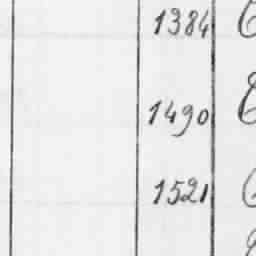 1384
1490
1521